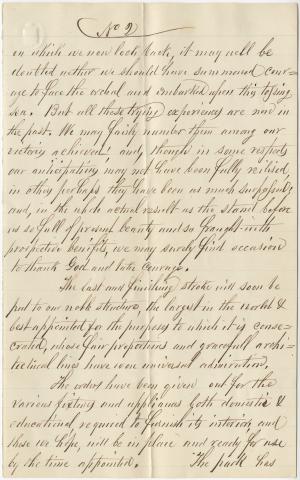 No 2)
on which we now look back, it may well be
doubted wether we should have summond cour=
age to face the ordeal and embarked upon this tossing
sea. But all these trying experiences are now in
the past. We may fairly number them among our
victorys achieved! and, though in some respects
our anticipations may not have been fully relised,
in other perhaps they have been as much surpassed;
and, in the uph actual result as the stand before
us so full of present beauty and so fraught with
prospective benifits, we may surely find occasion
to thank God and take Courage.
The last and finishing stroke will soon be
put to our noble structure, the largest in the world &
best appointed for the purposes to which it is conse=
crated, whose fair proportions and gracefull archi=
tectical lines have won universal admiration.
The orders have been given out for the
various fixtures and appliances both domestic &
educational required to furnish its interior, and
these we hope, will be in place and ready for use
by the time appointed. The park has